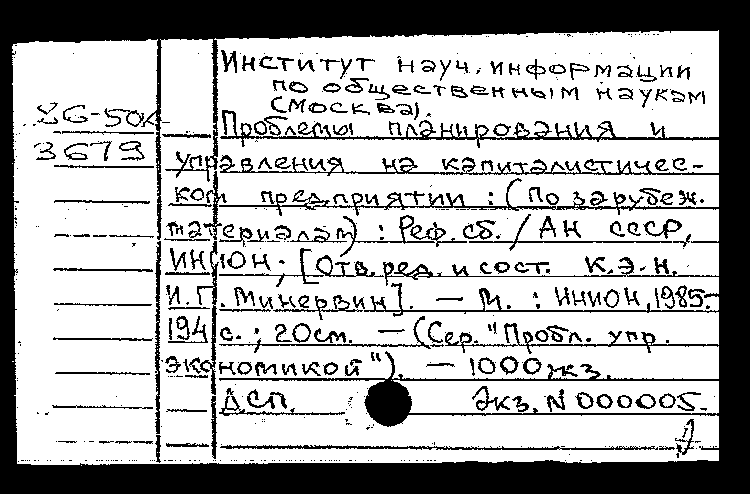 Институт науч. информации
по общественным наукам
(Москва).
Проблемы планирования и
3679
управления на капиталистичес-
ком предприятии : (По зарубеж.
материалам) : Реф. сб. / АН СССР,
ИНИОН; [Отв. ред. и сост. к.э.н.
И.Г. Минервин]. — М. : ИНИОН, 1985.-
194 с. ; 20см. — (Сер. "Пробл. упр.
экономикой"). — 1000 экз.
ДСП. Экз. N 000005.